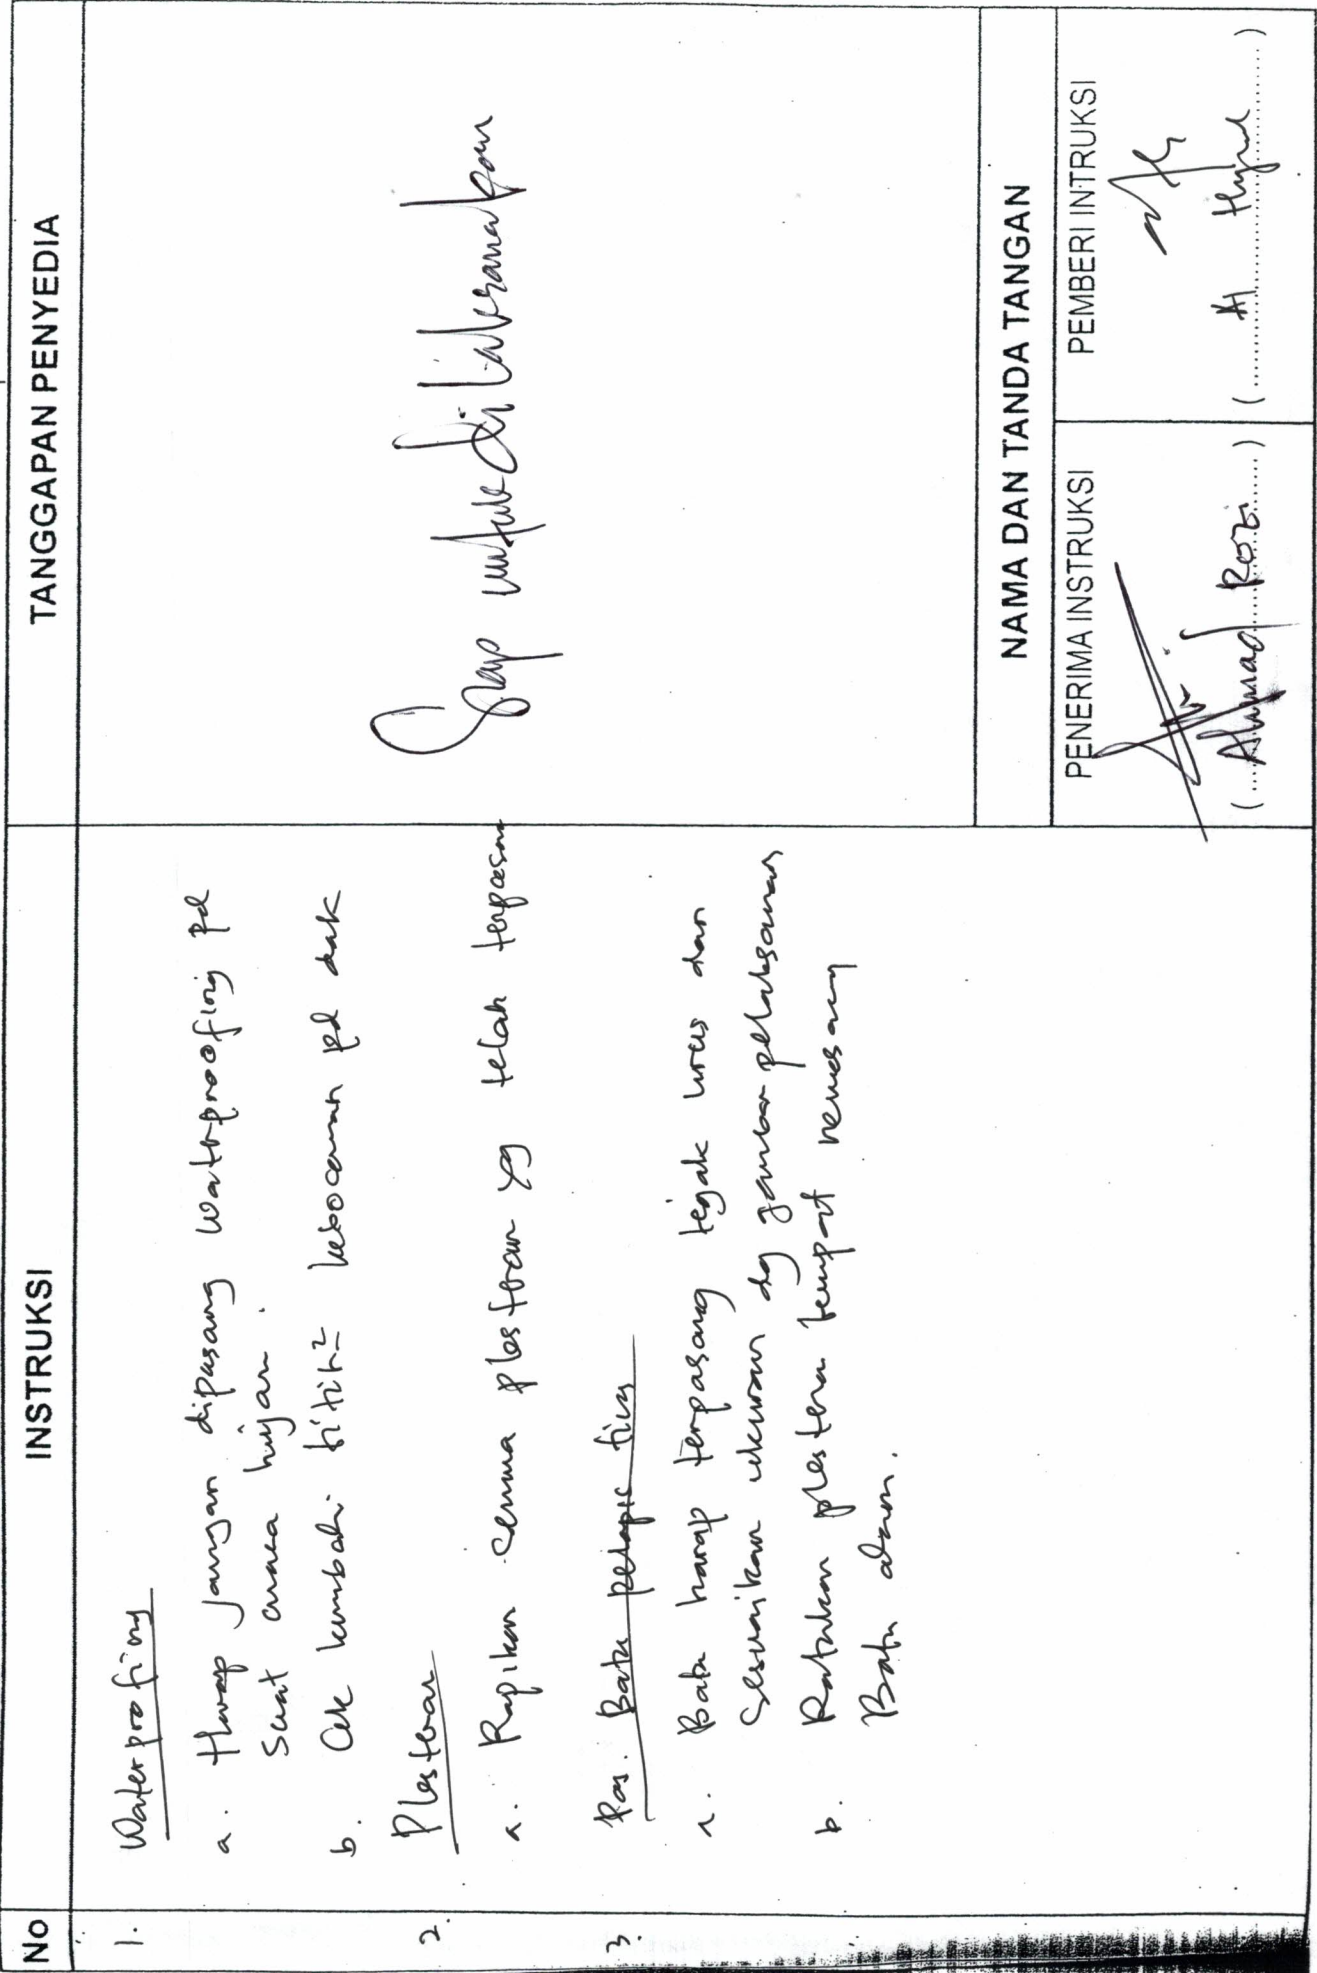 No
INSTRUKSI
TANGGAPAN PENYEDIA
1.
Waterprofing
a. Harap jangan dipasang waterproofing pd
Saat cuaca hujan.
b. Cek kembali titik² kebocoran pd dak
2.
Plesteran
a. Rapikan semua plesteran yg telah terpasan
3.
Pas. Batu pelapis
a. Bata harap terpasang tegak lurus dan
Sesuaikan ukuran dg gambar pelaksanaan
b. Ratakan plesteran tempat
Batu alam.
Siap untuk di laksanakan
NAMA DAN TANDA TANGAN
PENERIMA INSTRUKSI
PEMBERI INTRUKSI
(Ahmad Rozi)